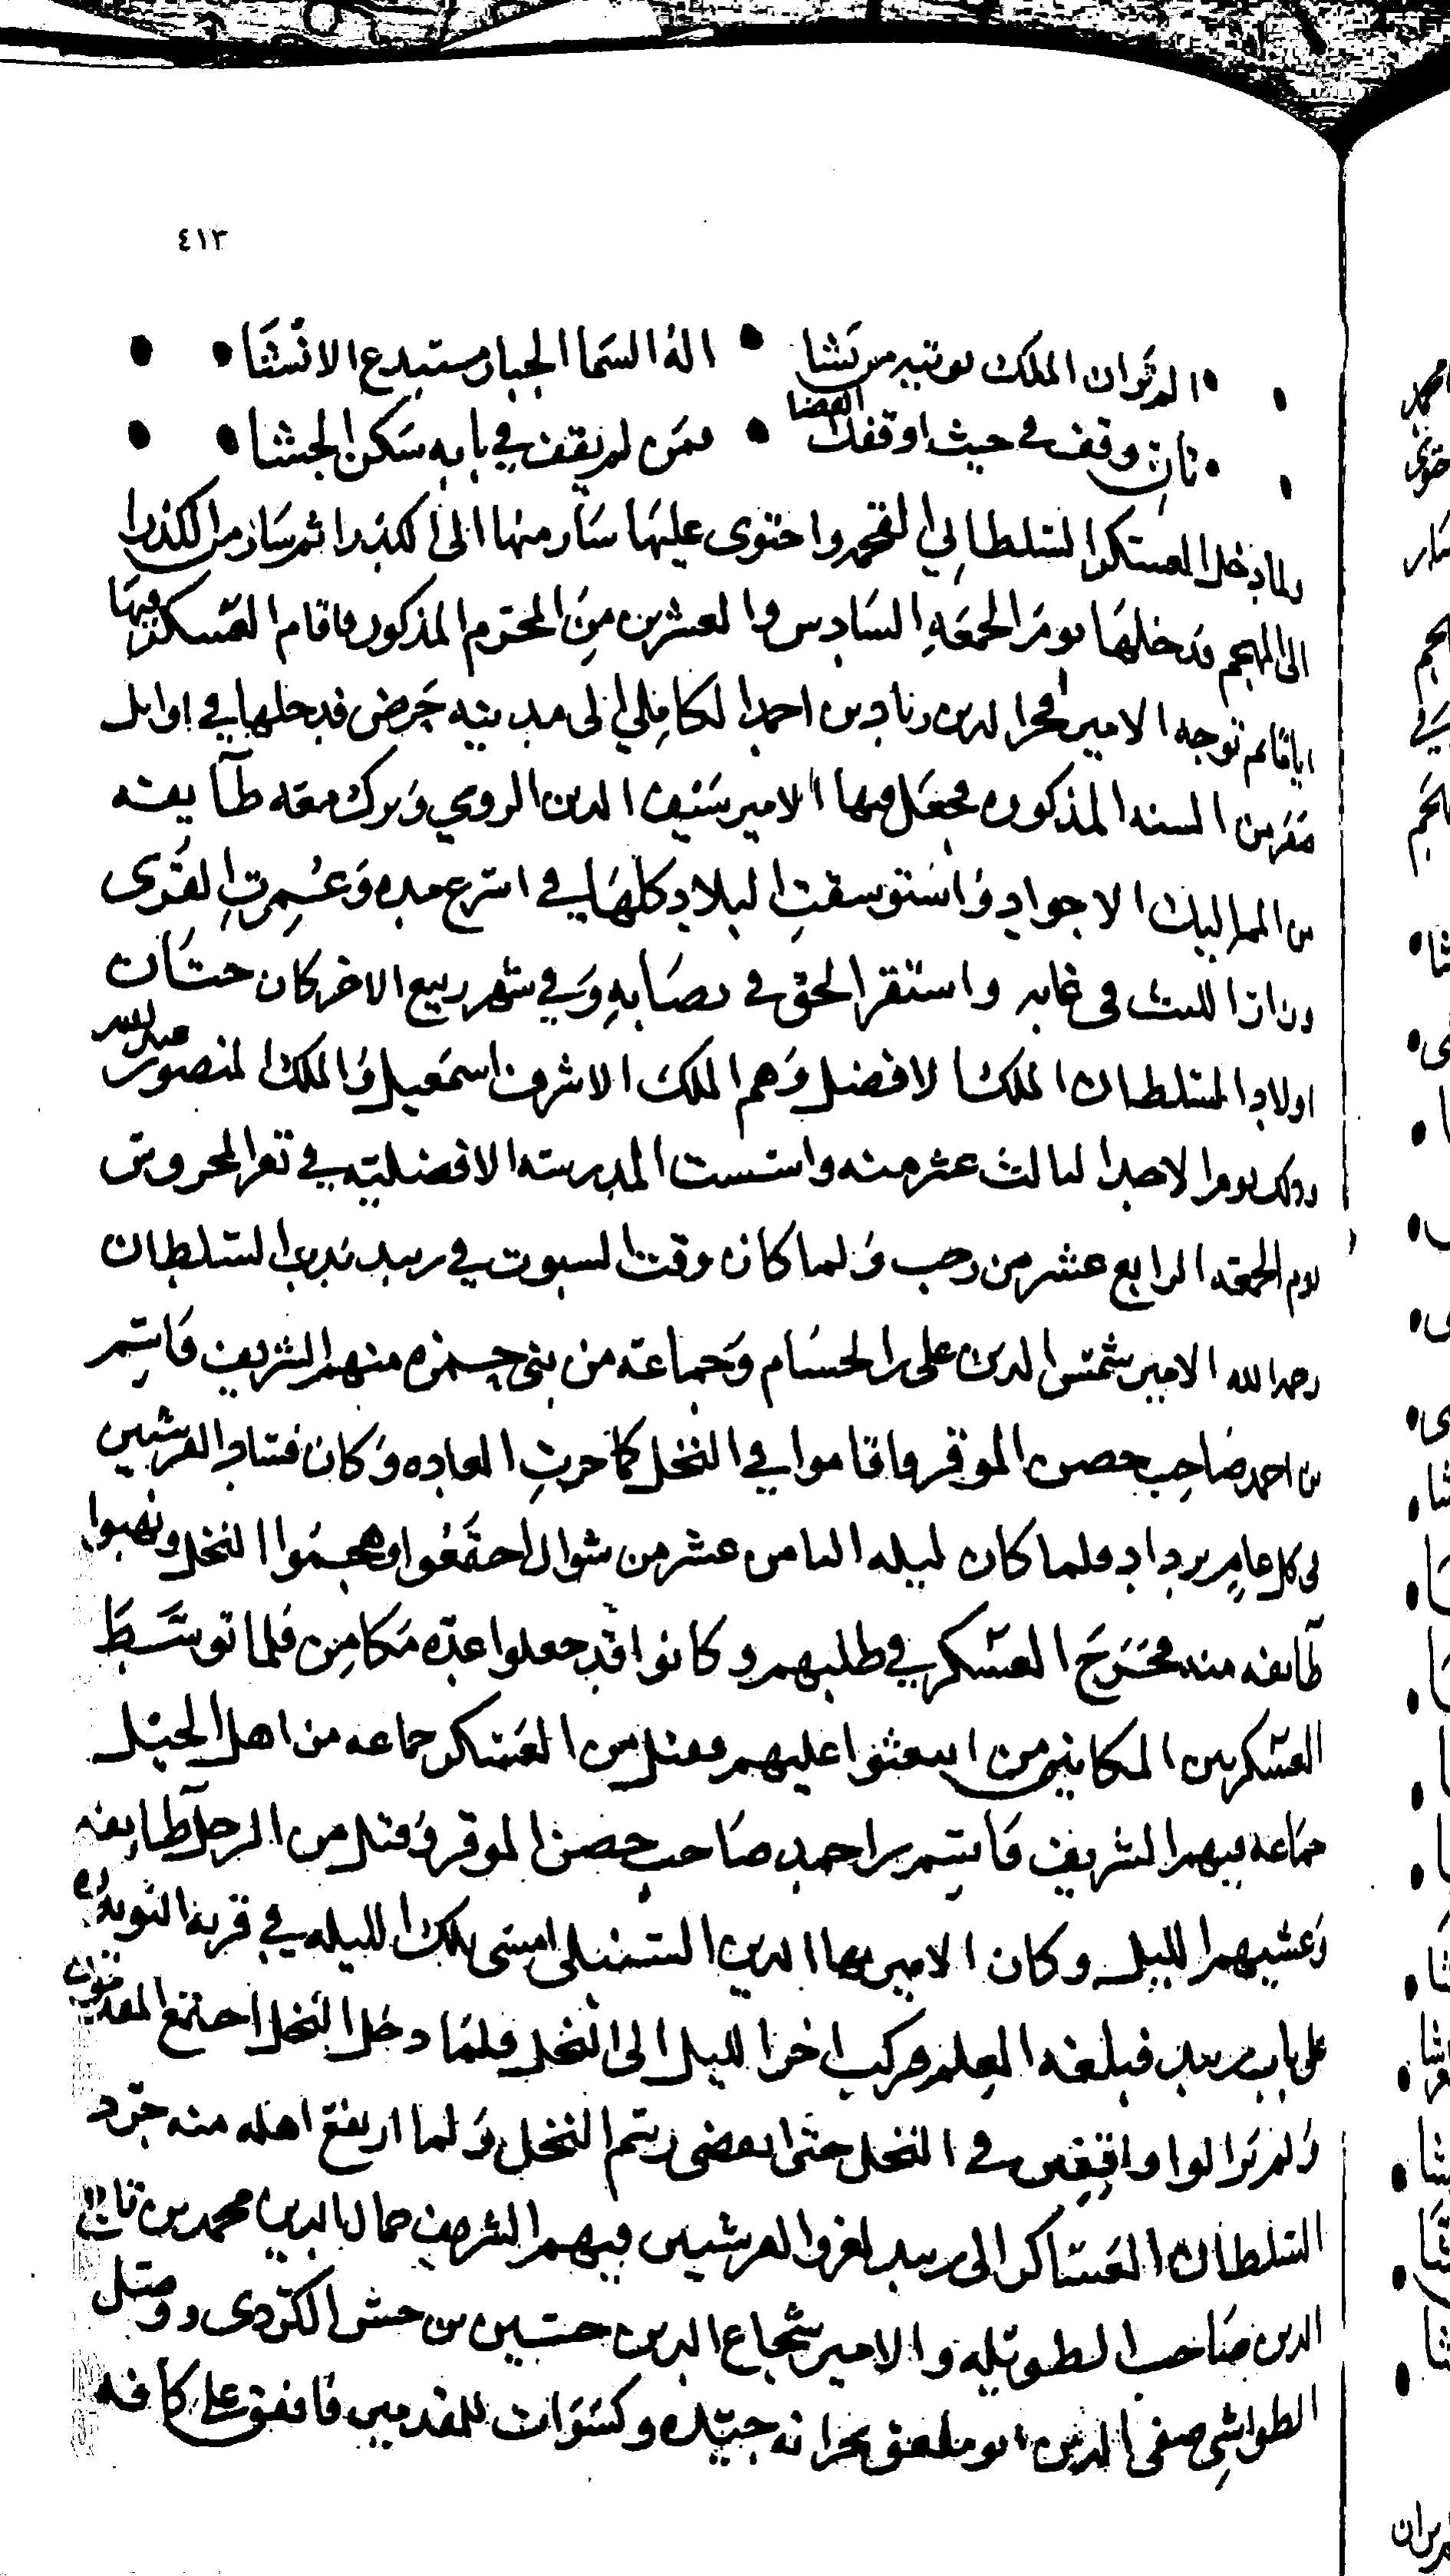 ٤١٣
الم تر ان الملك يوتيه من نشا • اله السما الجبار مستبدع الانشا •
تان وقف في حيث اوقفك القضا • فمن لم يقف في بابه سكن الجشا •
ولما دخل العسكر السلطاني القحمه واحتوى عليها سار منها الى الكدرا ثم سار من الكدرا
الى المهجم فدخلها يوم الجمعه السادس والعشرين من المحرم المذكور فاقام العسكر فيها
اياما ثم توجه الامير فخر الدين زياد بن احمد الكاملي الى مدينه حرض فدخلها في اوايل
صفر من السنه المذكوره فجعل فيها الامير سيف الدين الرومي وترك معه طآيفه
من المماليك الاجواد واستوسقت البلاد كلها في اسرع مده وعمرت القرى
وزار الليث في غابه واستقر الحق في نصابه وفي شهر ربيع الاخر كان ختان
اولاد السلطان الملك الافضل وهم الملك الاشرف اسمعيل والملك المنصور عبد الله
وذلك يوم الاحد الثالث عشر منه واسست المدرسه الافضليه في تعز المحروس
يوم الجمعه الرابع عشر من رجب ولما كان وقت السبوت في زبيد ندب السلطان
رحمه الله الامير شمس الدين على بن الحسام وجماعه من بني حمزه منهم الشريف قاسم
بن احمد صاحب حصن الموقر فاقاموا في النخل كما جرت العاده وكان فساد القرشيين
في كل عام يزداد فلما كان ليله الثامن عشر من شوال اجتمعوا وهجموا النخل ونهبوا
طايفه منه فخرج العسكر في طلبهم وكانوا قد جعلوا عده مكامن فلما توسط
العسكر بين المكامن انبعثوا عليهم فقتل من العسكر جماعه من اهل الخيل
جماعه فيهم الشريف قاسم بن احمد صاحب حصن الموقر وقتل من الرجل طايفه
وغشيهم الليل وكان الامير بها الدين السنبلي امسى تلك الليله في قريه النويدره
على باب زبيد فبلغه العلم فركب اخر الليل الى النخل فلما دخل النخل اجتمع
ولم يزالوا واقفين في النخل حتى انقضى رسم النخل ولما ارتفع اهله منه جرد
السلطان العساكر الى زبيد لغزو القرشيين فيهم الشريف جمال الدين محمد بن تاج
الدين صاحب الطويله والامير شجاع الدين حسين بن حسن الكردي ووصل
الطواشي صفي الدين ابو ملعق بخزانه جيده وكسوات للمقدمين فانفق على كافه